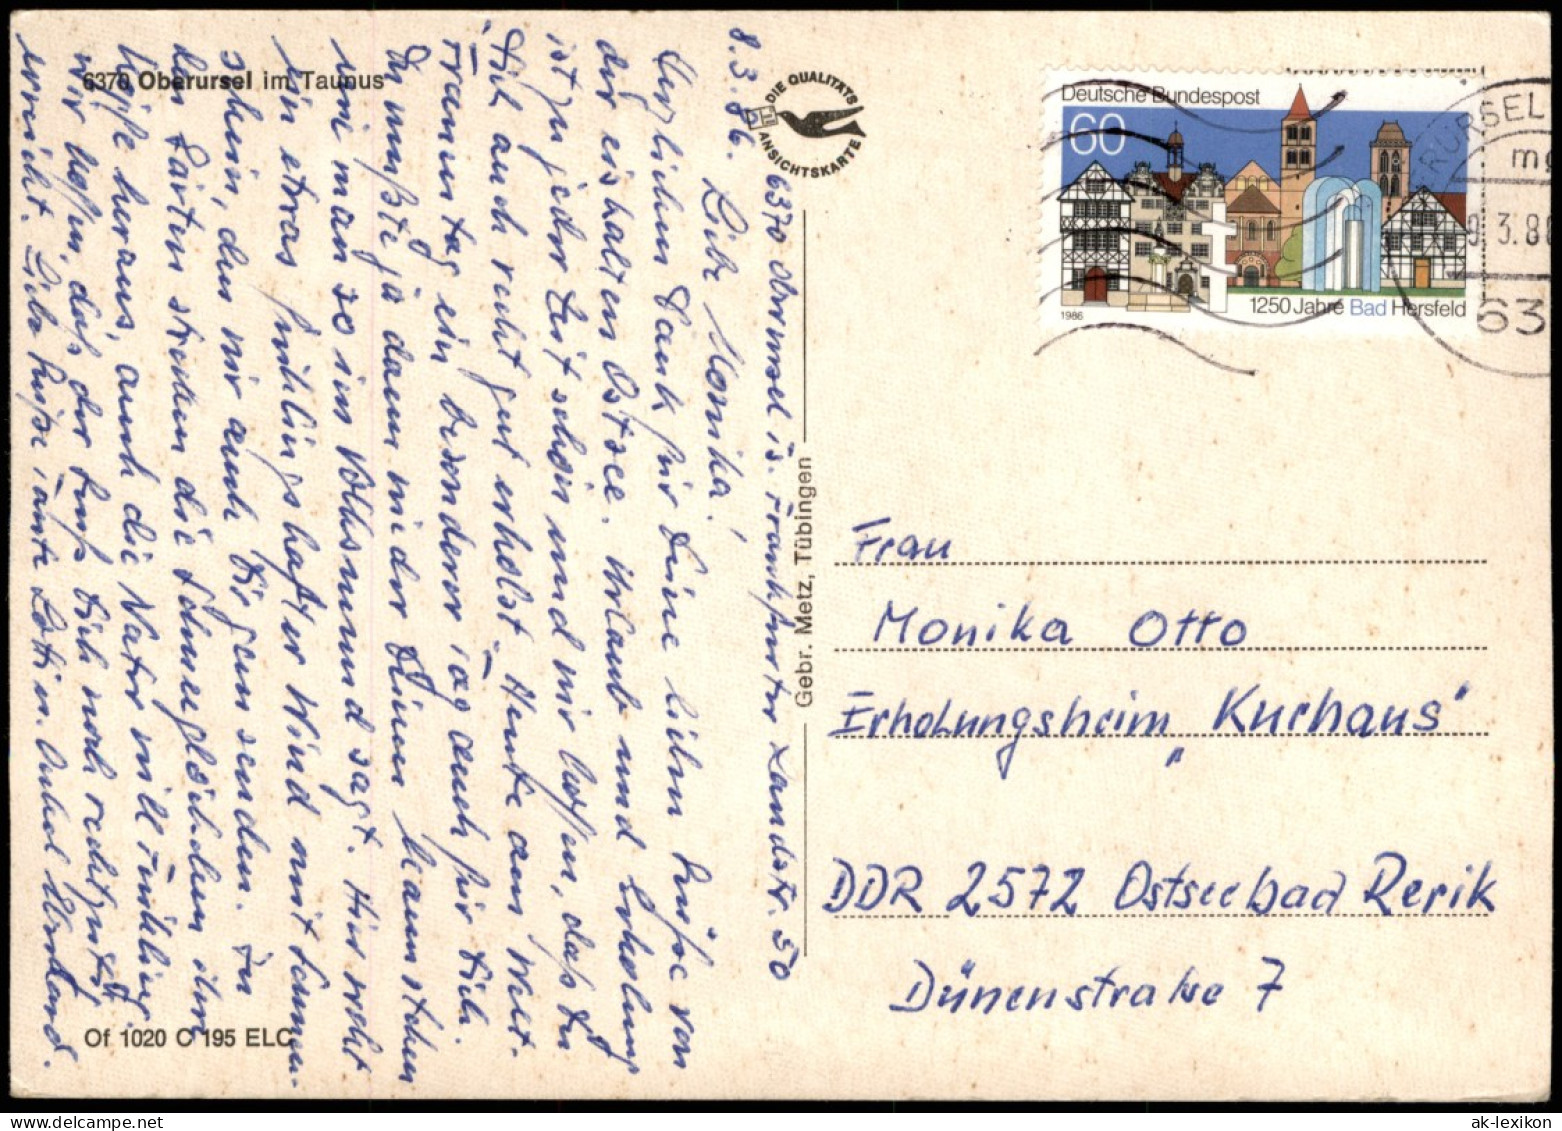 6370 Oberursel im Taunus
DIE QUALITÄTS
ANSICHTSKARTE
8.3.86.
6370 Oberursel Ts. Frankfurter Landstr. 50
Liebe Monika!
Herzlichen Dank für Deine lieben Grüße von
der eiskalten Ostsee. Urlaub und Erholung
ist zu jeder Zeit schön und wir hoffen, daß Du
Dich auch recht gut erholst. Heute am Welt-
frauentag ein besonderer Tag auch für Dich.
Du mußt ja daem wieder Deinen Mann stehen
wie man so im Volksmund sagt. Hier weht
ein etwas frühlingshafter Wind mit Sonnen-
schein, den wir auch Dir gern senden. In
den Gärten stecken die Schneeglöckchen ihre
Köpfe heraus, auch die Natur will Frühling.
Wir hoffen, daß der Gruß Dich noch rechtzeitig
erreicht. Liebe Grüße Tante Lotti u. Onkel Eberhard.
Of 1020 C 195 ELC
Gebr. Metz, Tübingen
Deutsche Bundespost
60
1250 Jahre Bad Hersfeld
1986
RURSEL
mg
9.3.86
63
Frau
Monika Otto
Erholungsheim „Kurhaus"
DDR 2572 Ostseebad Rerik
Dünenstraße 7
ak-lexikon